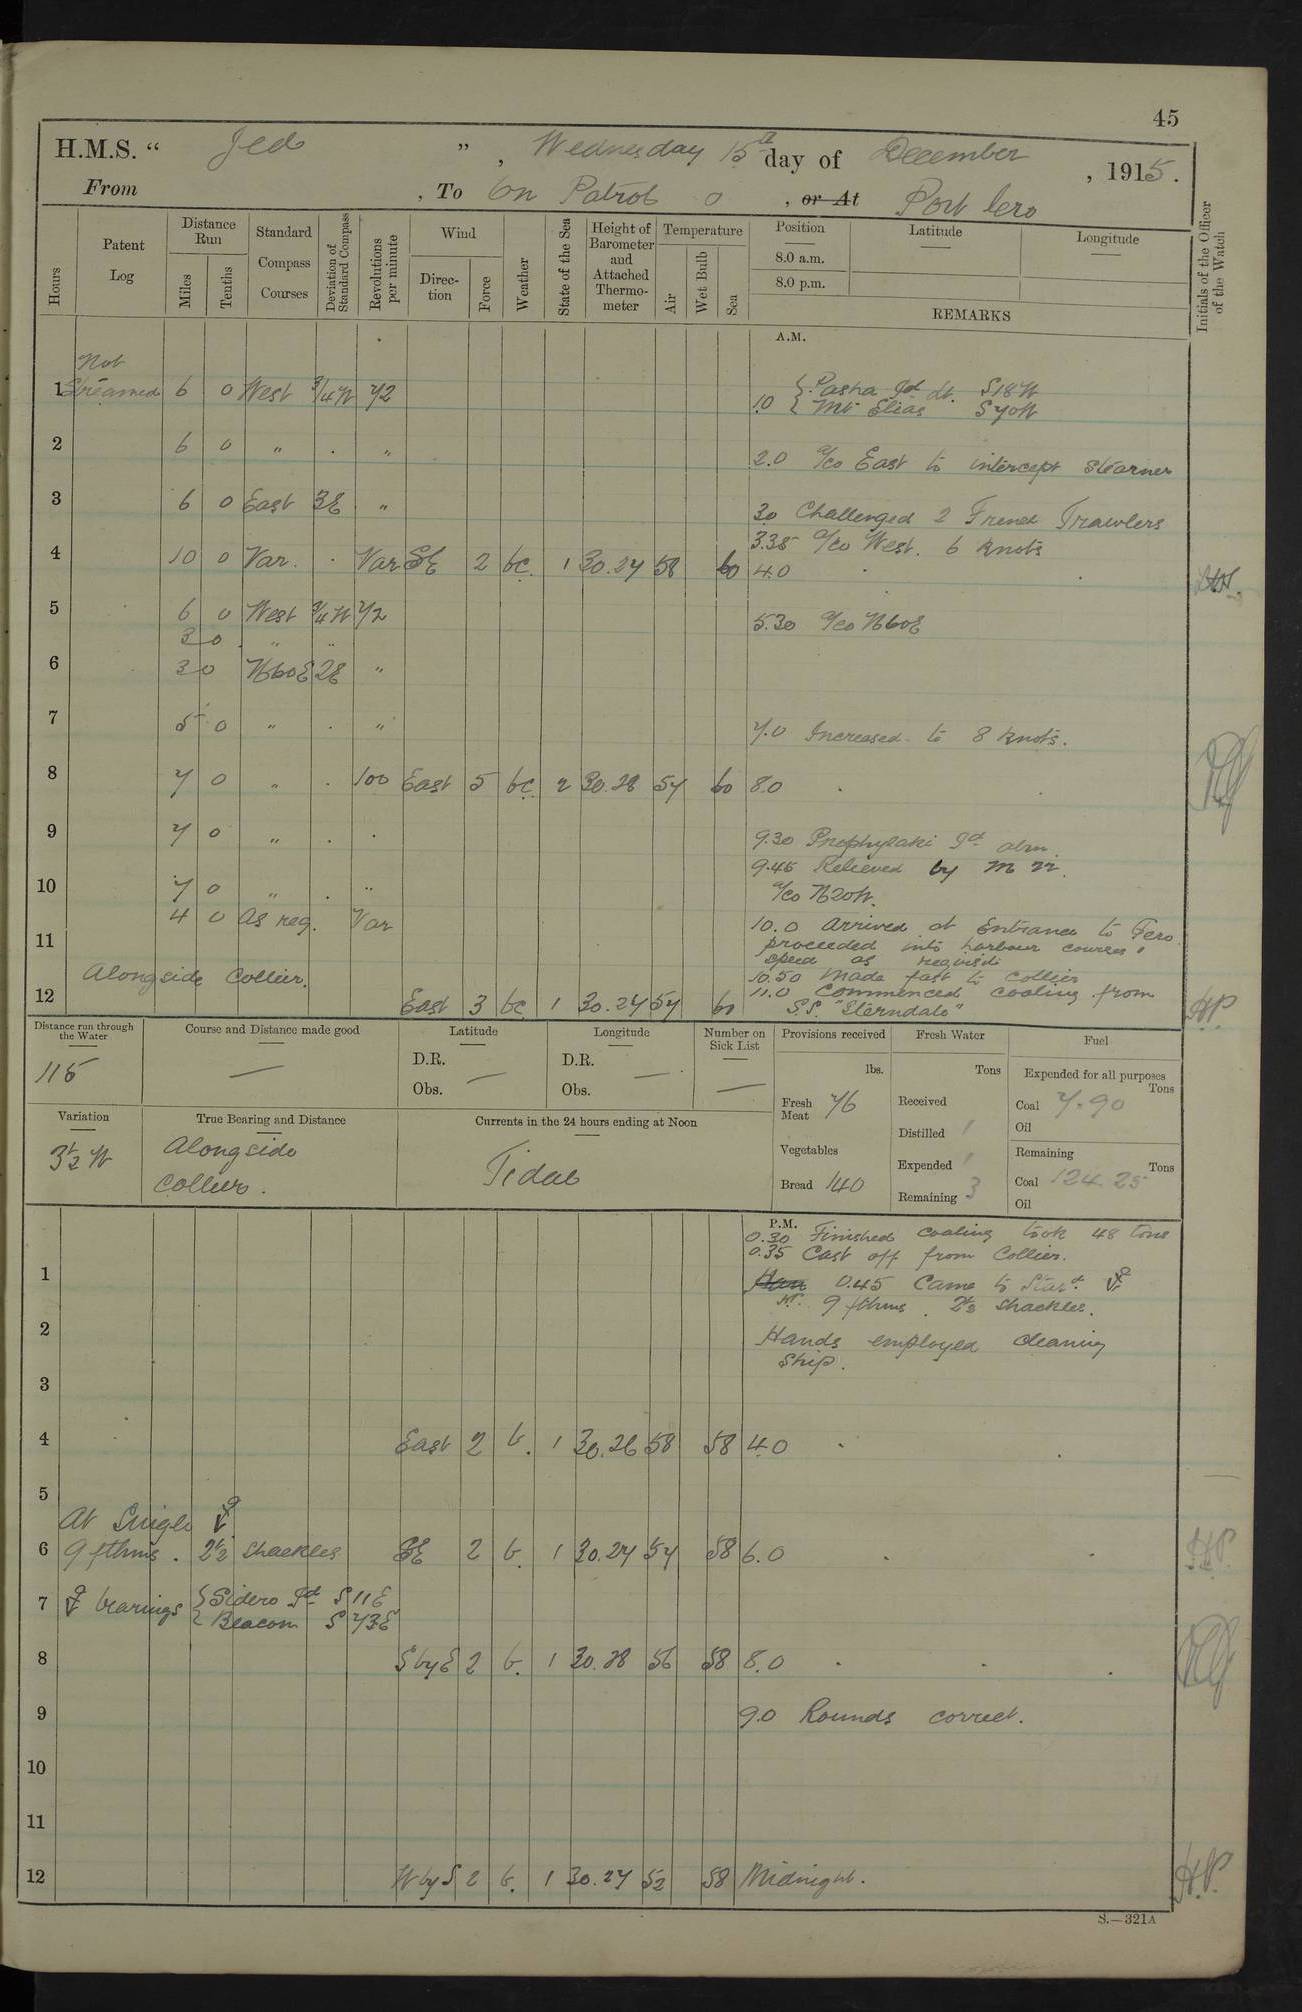 45
H.M.S. " Jed " , Wednesday 15th day of December , 1915.
From , To On Patrol , or At Port Iero
Hours
Patent Log
Distance Run
Miles
Tenths
Standard Compass Courses
Deviation of Standard Compass
Revolutions per minute
Wind
Direction
Force
Weather
State of the Sea
Height of Barometer and Attached Thermometer
Temperature
Air
Wet Bulb
Sea
Position
8.0 a.m.
8.0 p.m.
Latitude
Longitude
REMARKS
Initials of the Officer of the Watch
A.M.
Not
1 Streamed 6 0 West 3/4W 72
1.0 { Pasha Id lt. S18W
Mt Elias S70W
2 6 0 " . "
2.0 a/co East to intercept steamer
3 6 0 East 3E "
3.0 Challenged 2 French Trawlers
3.35 a/co West. 6 knots
4 10 0 Var. . Var SE 2 bc. 1 30.27 58 60 4.0
5 6 0 West 3/4W 72
5.30 a/co N60E
3 0 " "
6 3 0 N60E 2E "
7 5 0 " . "
7.0 Increased to 8 knots.
8 7 0 " . 100 East 5 bc. 2 30.28 57 60 8.0
9 7 0 " . .
9.30 Prophylaki Id abm.
9.45 Relieved by M 22.
10 7 0 " . "
a/co N20W.
4 0 As req. Var
10.0 Arrived at Entrance to Iero
11
proceeded into harbour courses &
speed as requisite
Alongside Collier.
10.50 Made fast to Collier
11.0 Commenced coaling from
12 East 3 bc. 1 30.27 57 60
S.S. "Sterndale"
H.P.
Distance run through the Water
115
Course and Distance made good
—
Latitude
D.R.
Obs. —
Longitude
D.R. —
Obs.
Number on Sick List
—
Provisions received
lbs.
Fresh Meat 76
Vegetables
Bread 140
Fresh Water
Tons
Received
Distilled 1
Expended 1
Remaining 3
Fuel
Expended for all purposes
Tons
Coal 7.90
Oil
Remaining
Tons
Coal 124.25
Oil
Variation
3½ W
True Bearing and Distance
Alongside
Collier.
Currents in the 24 hours ending at Noon
Tidal
P.M.
0.30 Finished coaling took 48 tons
0.35 Cast off from Collier.
1
0.45 Came to Stard. ⚓
9 fthms. 2½ shackles.
2
Hands employed cleaning
ship.
3
4 East 2 b. 1 30.26 58 58 4.0
5
At Single ⚓
6 9 fthms. 2½ shackles SE 2 b. 1 30.27 57 58 6.0
H.P.
7 ⚓ bearings { Sidero Id S11E
Beacon S73E
8 S by E 2 b. 1 30.28 56 58 8.0
9 9.0 Rounds correct.
10
11
12 W by S 2 b. 1 30.27 52 58 Midnight.
H.P.
S.—321A